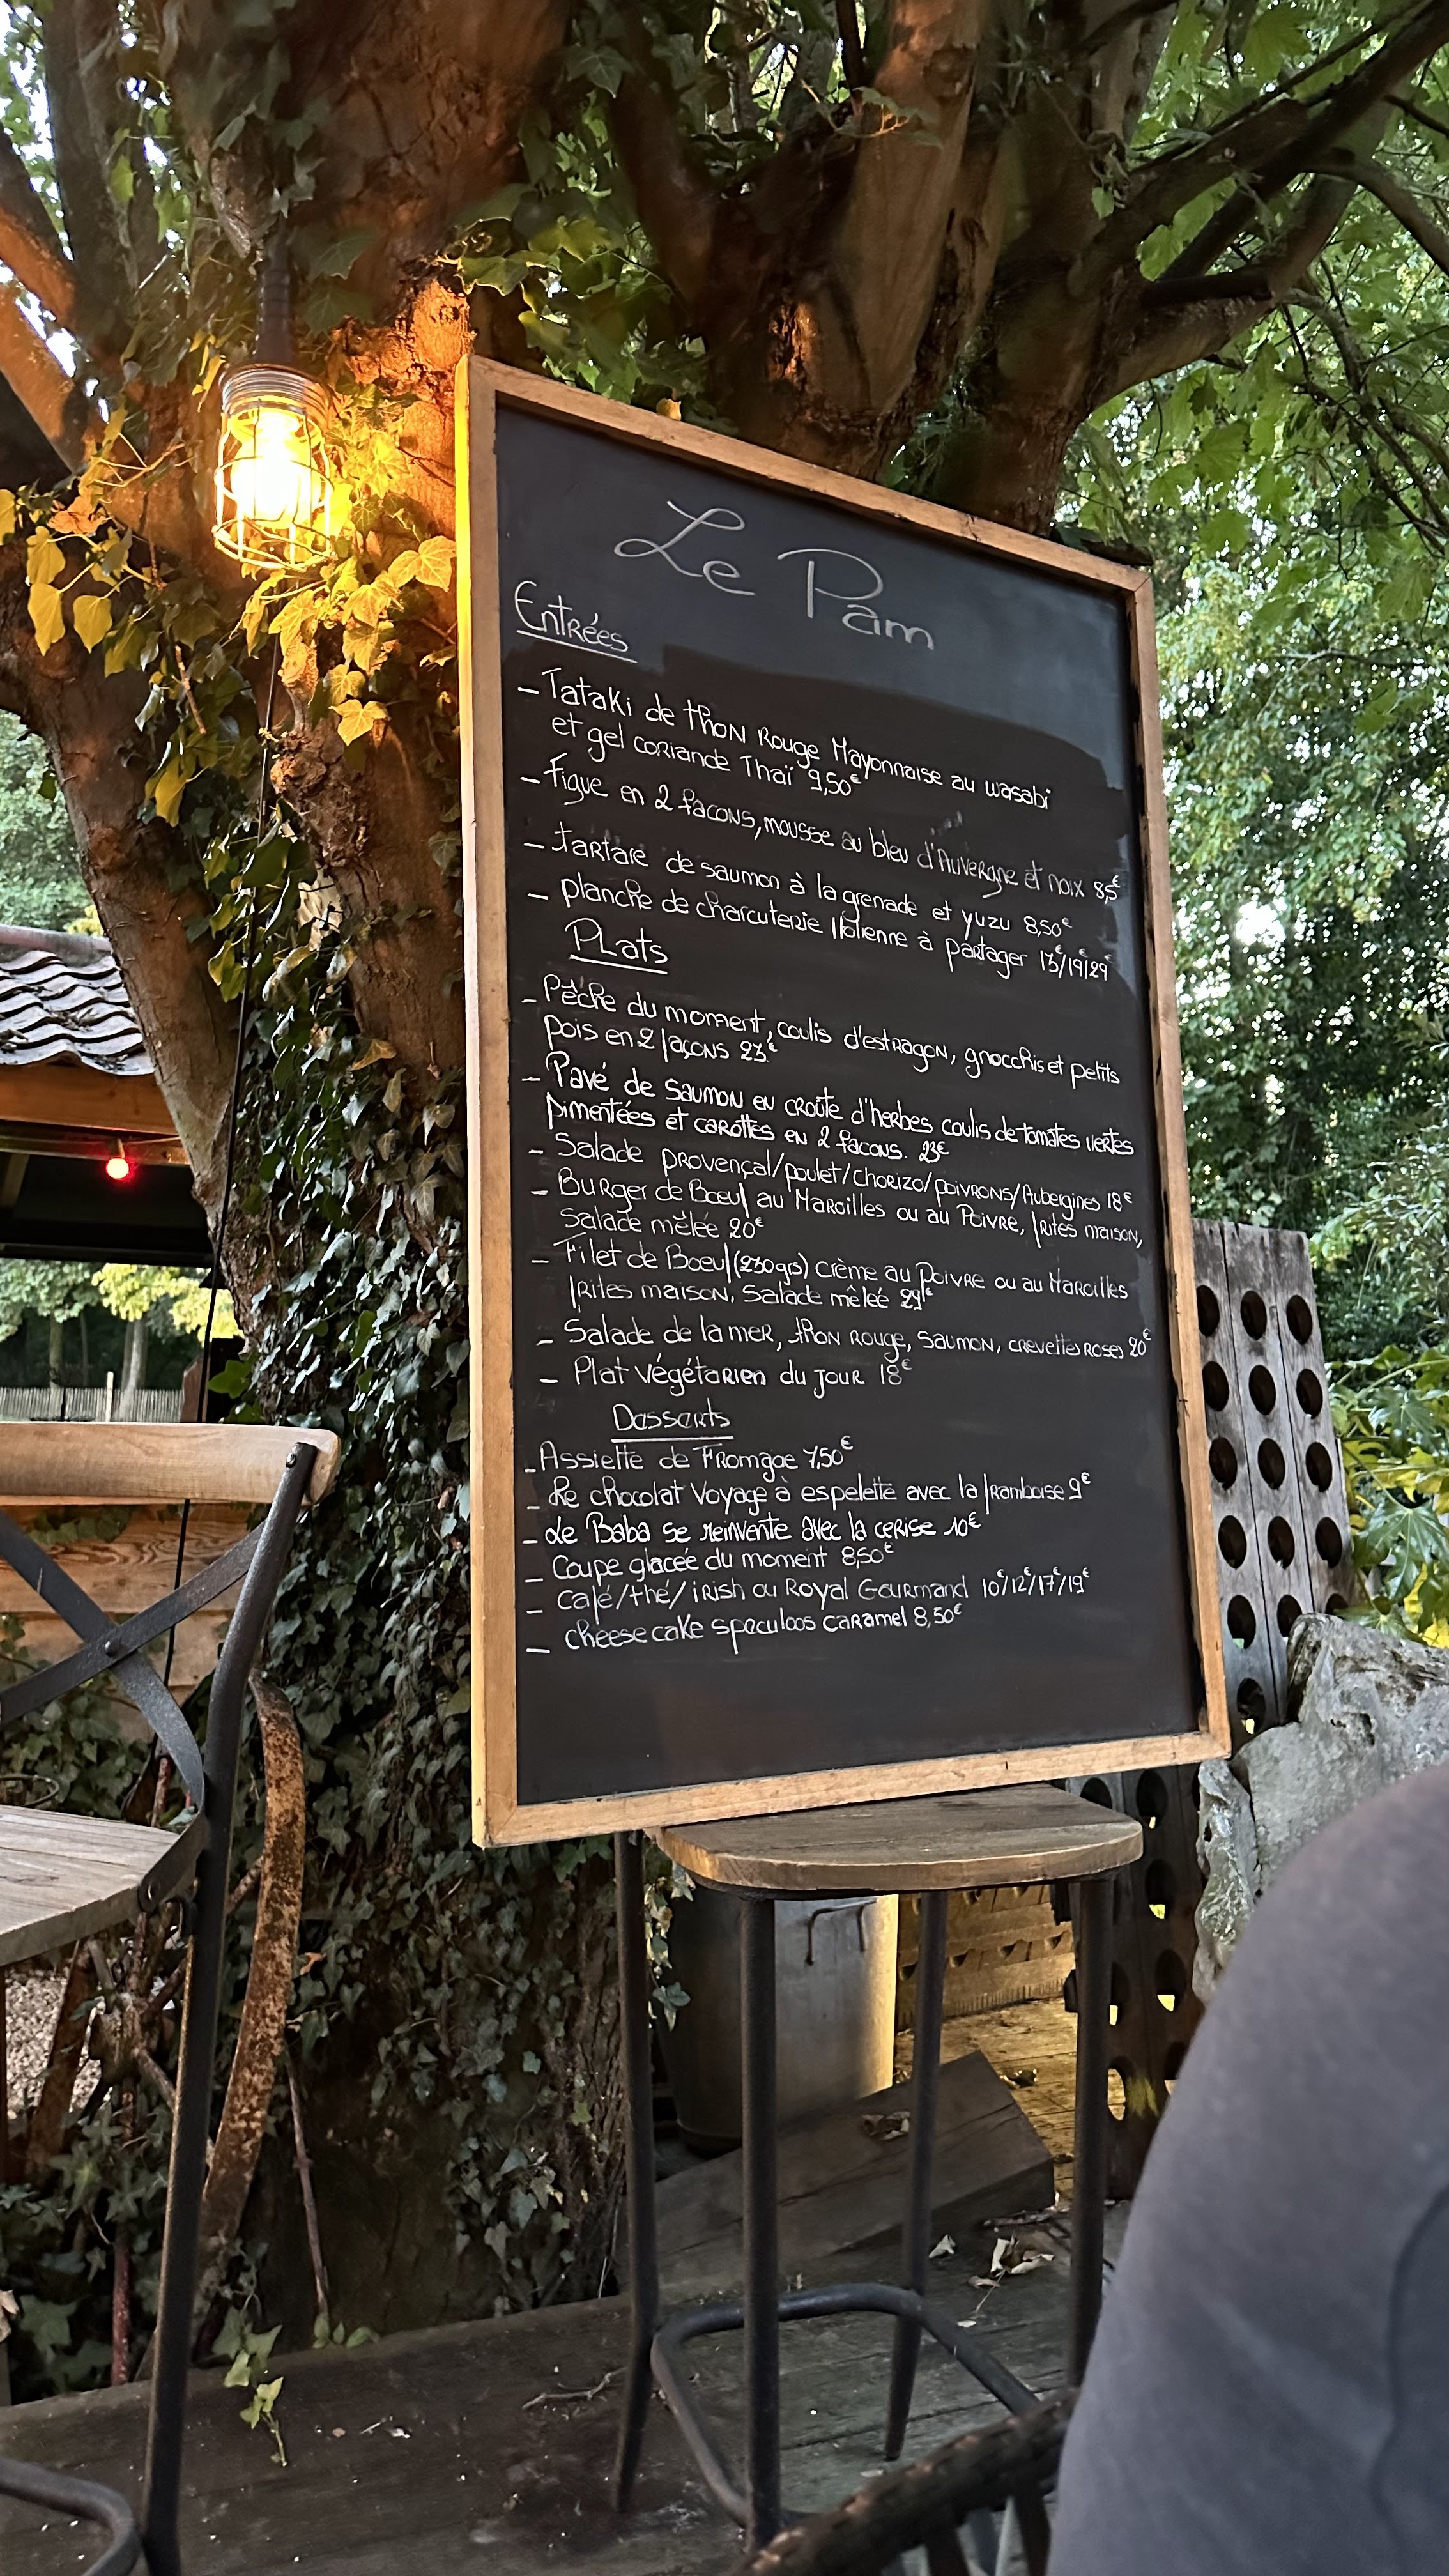 Le Pam
Entrées
- Tataki de thon Rouge Mayonnaise au wasabi
et gel coriande Thaï 9,50€
- Figue en 2 facons, mousse au bleu d'Auvergne et noix 8,5€
- tartare de saumon à la grenade et yuzu 8,50€
- planche de charcuterie Italienne à partager 13€/19€/29€
Plats
- Pêche du moment, coulis d'estragon, gnocchis et petits
pois en 2 façons 23.€
- Pavé de saumon en croûte d'herbes coulis de tomates vertes
pimentées et carottes en 2 facons. 23€
- Salade provençal/poulet/chorizo/poivrons/Aubergines 18€
- Burger de Bœuf au Maroilles ou au Poivre, frites maison,
Salade mêlée 20€
- Filet de Boeuf (230grs) crème au Poivre ou au Maroilles
frites maison, Salade mêlée 29€
- Salade de la mer, thon rouge, saumon, crevettes roses 20€
- Plat végétarien du jour 18€
Desserts
- Assiette de Fromage 7,50€
- Le chocolat voyage à espelette avec la framboise 9€
- Le Baba se reinvente avec la cerise 10€
- Coupe glacée du moment 8,50€
- Café/thé/irish ou Royal Gourmand 10€/12€/17€/19€
- cheese cake speculoos caramel 8,50€